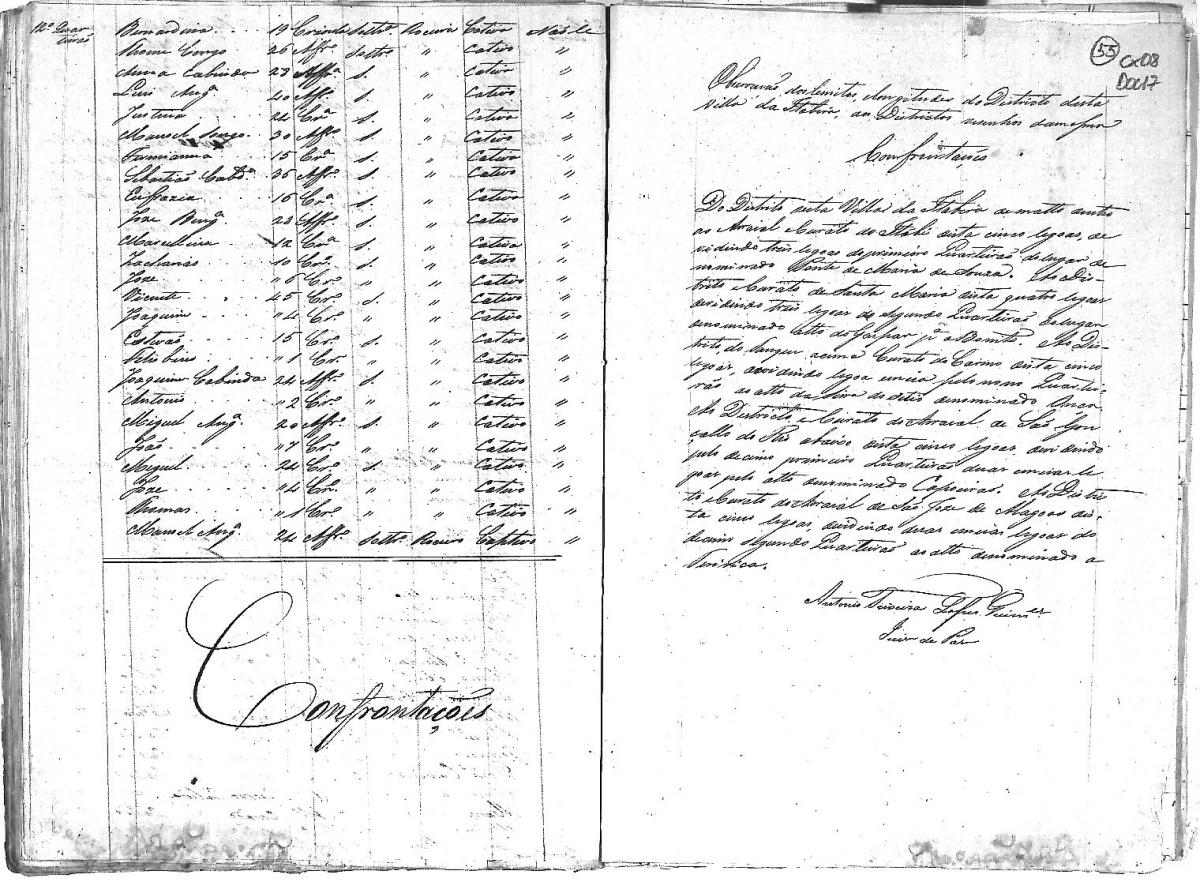 12º Quar
teirão
Bernardina 19 Crioula Soltrª Roceira Cativa Não le
Thome Congo 26 Affrº Soltrº " Cativo "
Anna Cabinda 23 Affrª S. " Cativa "
Luis Angª 40 Affº S. " Cativo "
Justina 24 Crª S. " Cativa "
Manoel Congo 30 Affrº S. " Cativo "
Damianna 15 Crª S. " Cativa "
Sebastião Cabdª 35 Affrº S. " Cativo "
Eufrazia 16 Crª S. " Cativa "
Joze Bengª 22 Affrº S. " Cativo "
Marcelina 12 Crª S. " Cativa "
Zacharias 10 Crº S. " Cativo "
Joze " 6 Crº " " Cativo "
Vicente 45 Crº S. " Cativo "
Joaquim " 4 Crº " " Cativo "
Estevão 15 Crº S. " Cativo "
Felisbino " 1 Crº " " Cativo "
Joaquim Cabinda 24 Affrº S. " Cativo "
Antonio " 2 Crº " " Cativo "
Miguel Angª 20 Affrº S. " Cativo "
João " 7 Crº " " Cativo "
Miguel 24 Crº S. " Cativo "
Joze " 4 Crº " " Cativo "
Thomas " 1 Crº " " Cativo "
Manoel Angª 24 Affrº Soltrº Roceiro Captivo "
Confrontaçoes
55
Cx08
Doc17
dos Limites, e Longitudes do Districto desta
Villa da Itabira, aos Districtos visinhos damesma
Confrontações
Do Distrito desta Villa da Itabira de matto dentro
ao Araial e Curato do Itabé dista cinco legoas, de
vidindo tres legoas do primeiro Quarteirão do lugar de
nominado Ponte de Maria de Souza. Ao Dis-
trito e Curato de Santa Maria dista quatro legoas
devidindo tres legoas do segundo Quarteirão do lugar
denominado Alto do Gaspar pª a Bonito. Ao Dis-
trito, do acima Curato do Carmo dista cinco
legoas, devidindo legoa emeia pelo nono Quartei-
rão ao alto da do sitio denominado
Ao Districto, e Curato do Araial de São Gon
çallo do Rio abaixo dista cinco legoas, devidindo
pelo decimo primeiro Quarteirão duas emeias le
goas pelo alto denominado Capoeiras. Ao Distri
to e Curato do Araial de São Joze de Alagoas dis-
ta cinco legoas, devidindo duas emeias legoas do
decimo segundo Quarteirão ao alto denominado a
Antonio Teixeira Lopes Guimes
Juiz de Paz